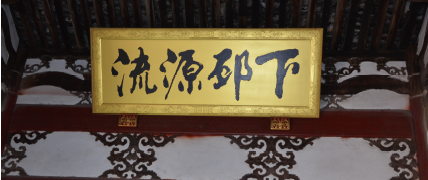 下邳源流